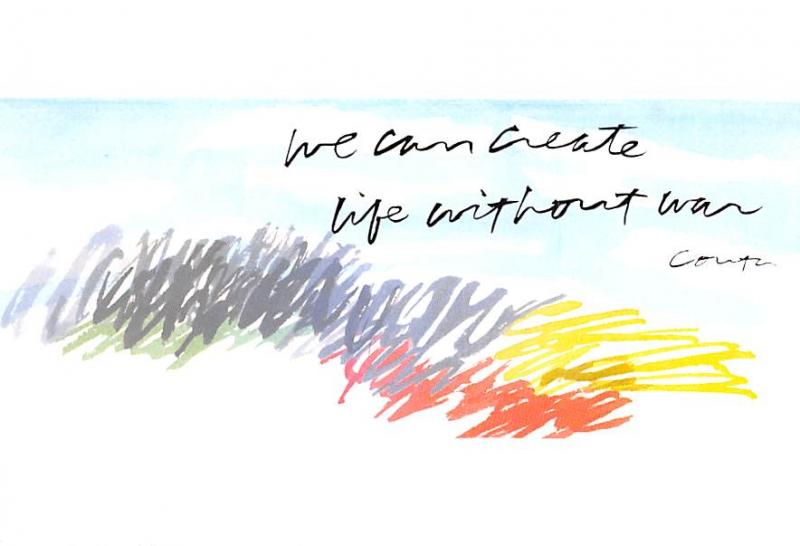 we can create
life without war